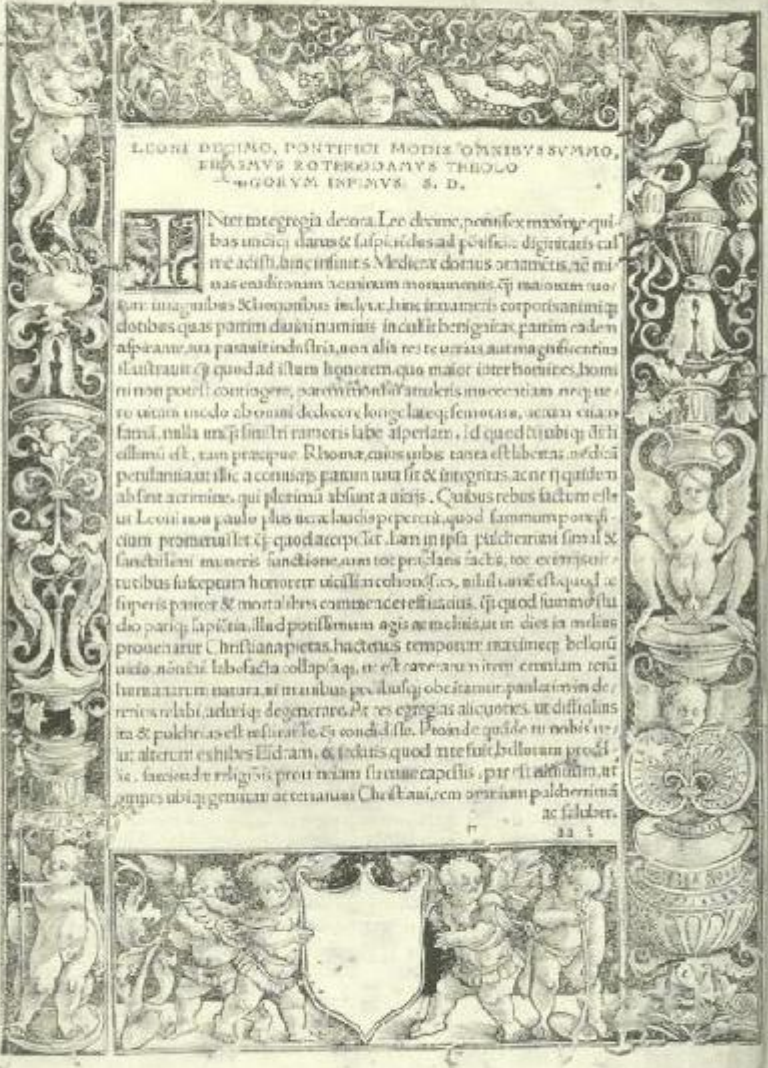 LEONI DECIMO, PONTIFICI MODIS OMNIBVS SVMMO,
ERASMVS ROTERODAMVS THEOLO
GORVM INFIMVS. S. D.
INter tot egregia decora Leo decime, pontifex maxime, qui
bus undiq; clarus & suspiciendus ad pontificiæ dignitatis cul
mē adisti, hinc infinitis Medicæ domus ornamētis, nō mi
nus eruditorum hominum monumentis, q̃ maiorum tuo
rum imaginibus & honoribus inclytæ, hinc corporis animiq;
dotibus quas partim diuini numinis indulsit benignitas, partim eadem
aspirante, tua parauit industria, non alia res te uerius, aut magnificentius
illustrauit q̃ quod ad istum honorem, quo maior inter homines, homi
ni non potest contingere, parem morum attuleris innocentiam, neq; ue
ro uitam modo ab omni dedecore longe lateq; semotam, uerum etiam
famā, nulla unq̃ sinistri rumoris labe aspersam. Id quod cū ubiq; diffi
cillimū est, tum præcipue Rhomæ, cuius urbis tanta est libertas, ne dicā
petulantia, ut illic a conuicijs parum tuta sit & integritas, ac ne ij quidem
absint a crimine, qui plurimū absunt a uitijs. Quibus rebus factum est
ut Leoni non paulo plus ueræ laudis pepererit, quod summum pontifi-
cium promeruisset q̃ quod accepisset. Iam in ipsa pulcherrimi simul &
sanctissimi muneris functione, cum tot præclaris factis, tot eximijs uir-
tutibus susceptum honorem uicissim cohonestes, nihil tamē est quod te
superis pariter & mortalibus commendet efficacius, q̃ quod summo stu
dio pariq; sapiētia, illud potissimum agis ac moliris, ut in dies in melius
prouehatur Christiana pietas, hactenus temporum maximeq; bellorū
uitio, nōnihil labefacta collapsaq;, ut est cæterarum item omnium rerū
humanarum natura, ni manibus pedibusq; obnitamur, paulatim in de-
terius relabi, uelutiq; degenerare. At res egregias aliquoties, ut difficilius
ita & pulchrius est restituisse, q̃ condidisse. Proinde quādo tu nobis ue-
lut alterum exhibes Esdram, & sedatis quod in te fuit, bellorum procel-
lis, sarciendæ religiōis prouinciam strenue capessis, par est omnium, ut
omnes ubiq; gentium ac terrarum Christiani, rem omnium pulcherrimā
ac saluber-
aa 2